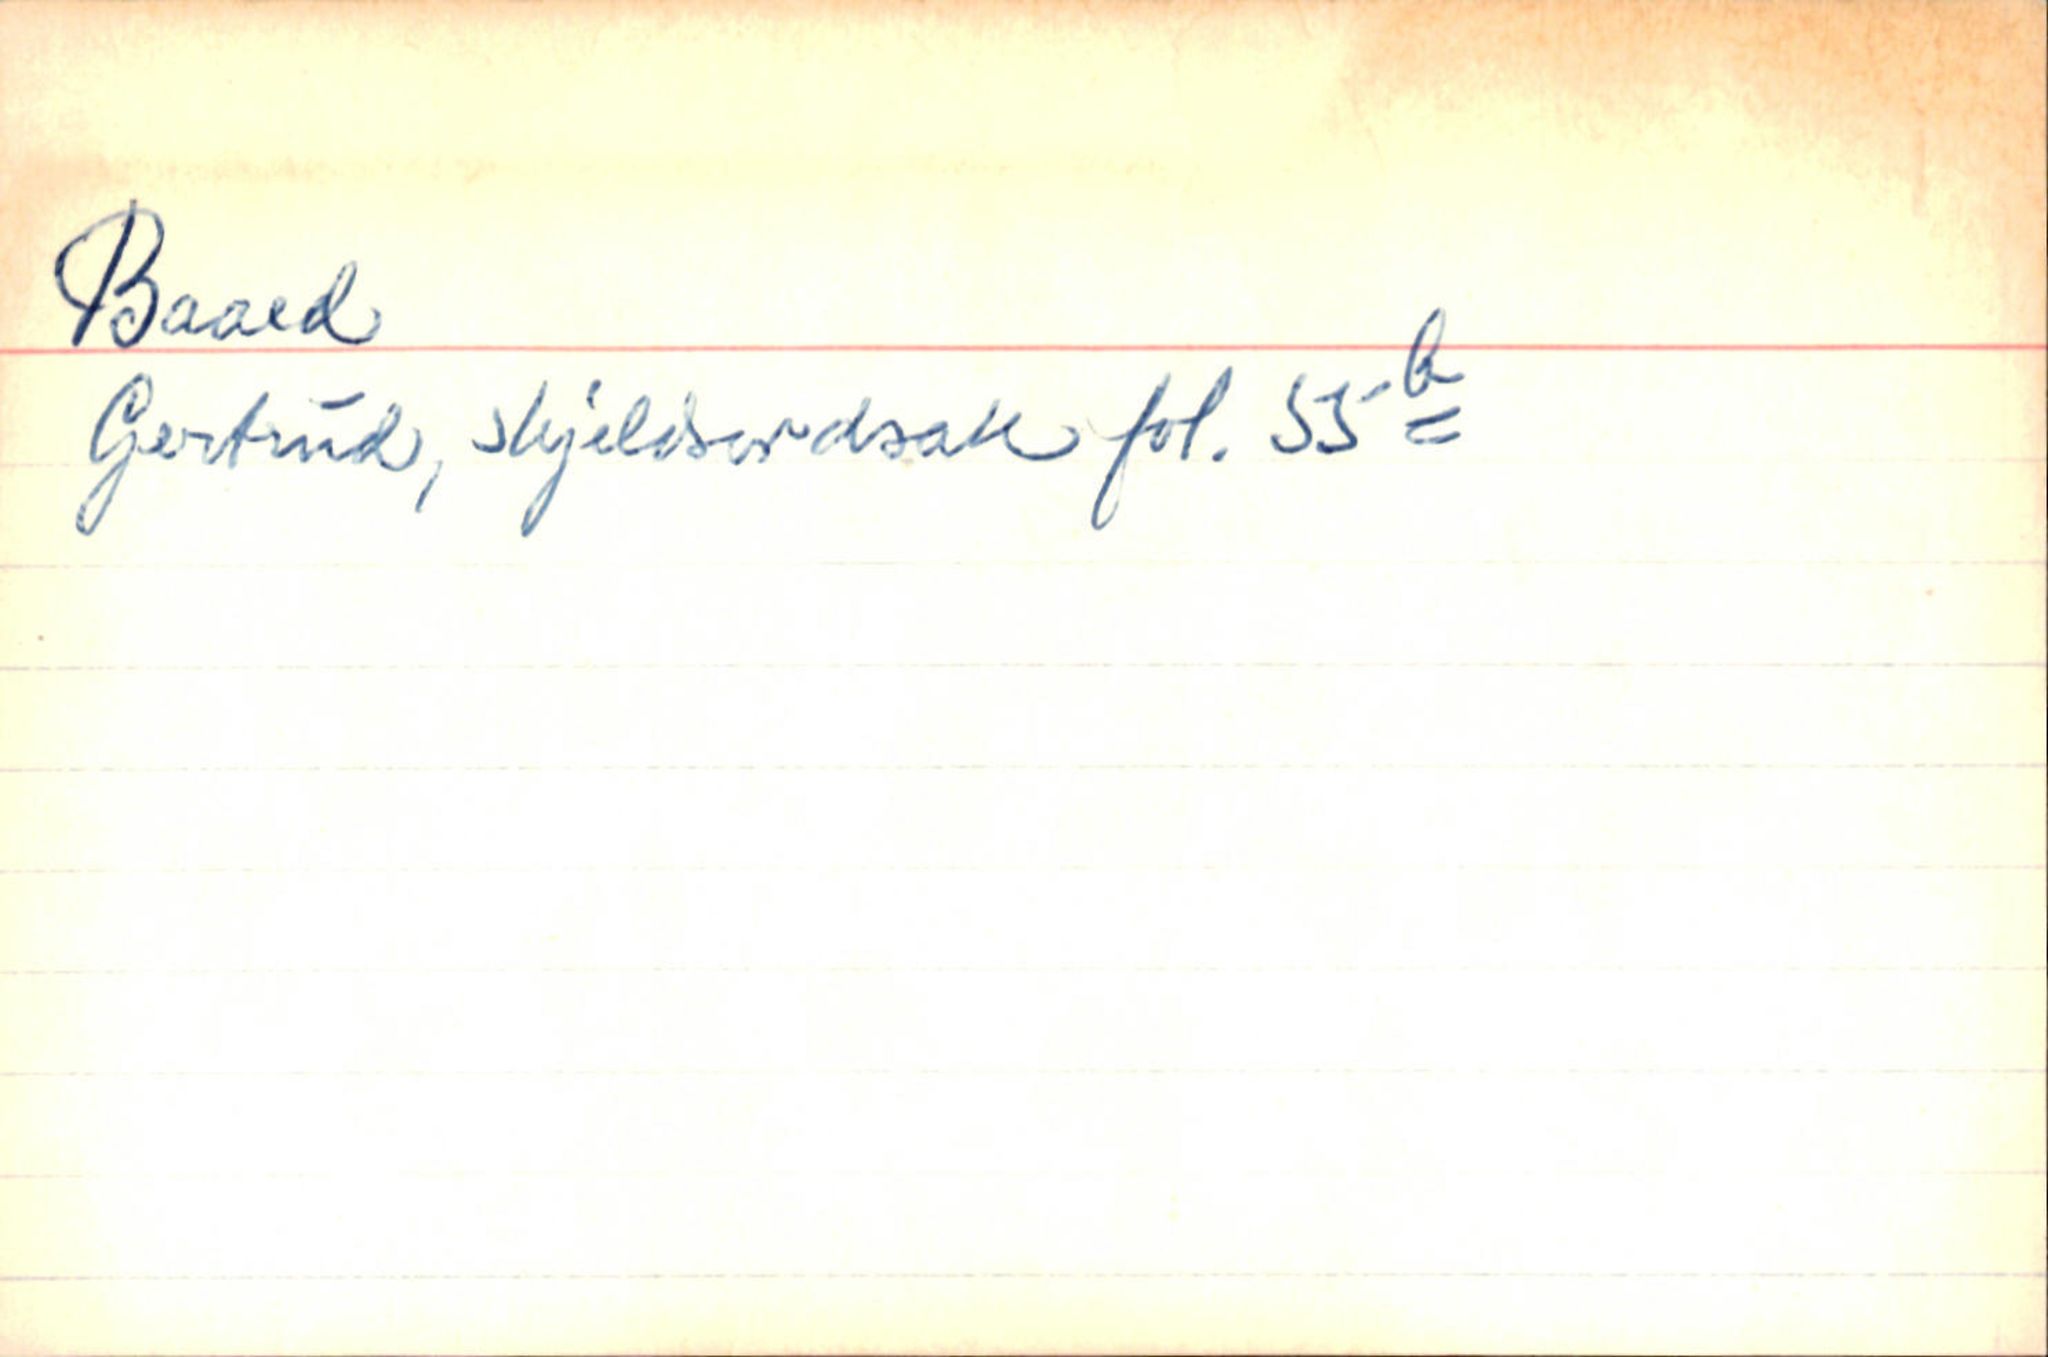 Baard
Gertrud, skjeldsordsak fol. 55 b